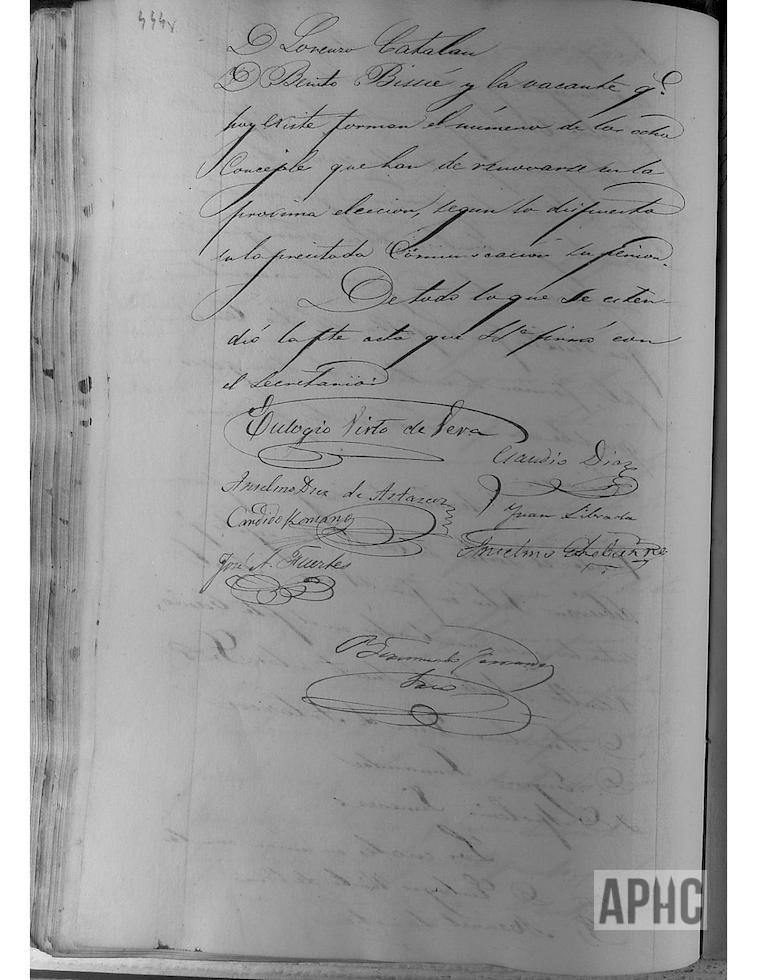 444v
D Lorenzo Catalan
D Benito Bissié y la vacante q.e
hoy existe forman el número de los ocho
Concejales que han de renovarse en la
proxima eleccion, segun lo dispuesto
en la precitada Comunicacion Superior.
De todo lo que se esten-
dió la pte acta que SSª firmó con
el Secretario:
Eulogio Virto de Vera
Claudio Diaz
Anselmo Diez de Artazcoz
Candido Romano
Juan Librada
José A. Fuertes
Anselmo
Srio
APHC